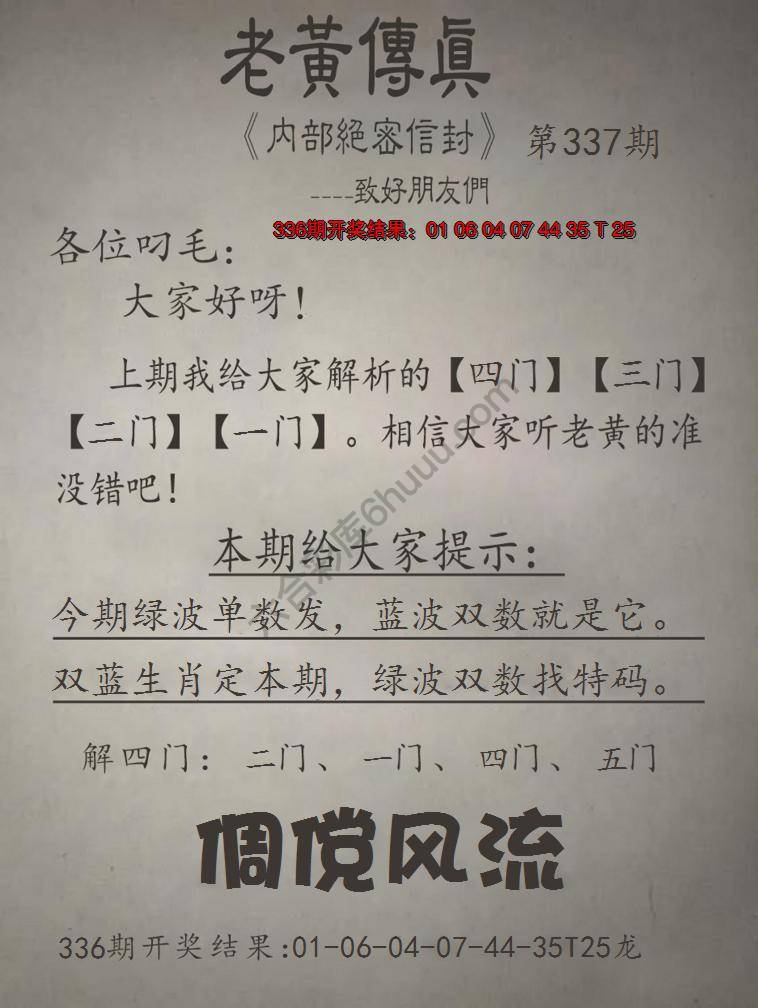 老黃傳真
《内部絕密信封》 第337期
----致好朋友們
336期开奖结果：01 06 04 07 44 35 T 25
各位叼毛：
大家好呀！
上期我给大家解析的【四门】【三门】
【二门】【一门】。相信大家听老黄的准
没错吧！
本期给大家提示：
今期绿波单数发，蓝波双数就是它。
双蓝生肖定本期，绿波双数找特码。
解四门：二门、一门、四门、五门
倜傥风流
336期开奖结果:01-06-04-07-44-35T25龙
六合彩库6huuu.com